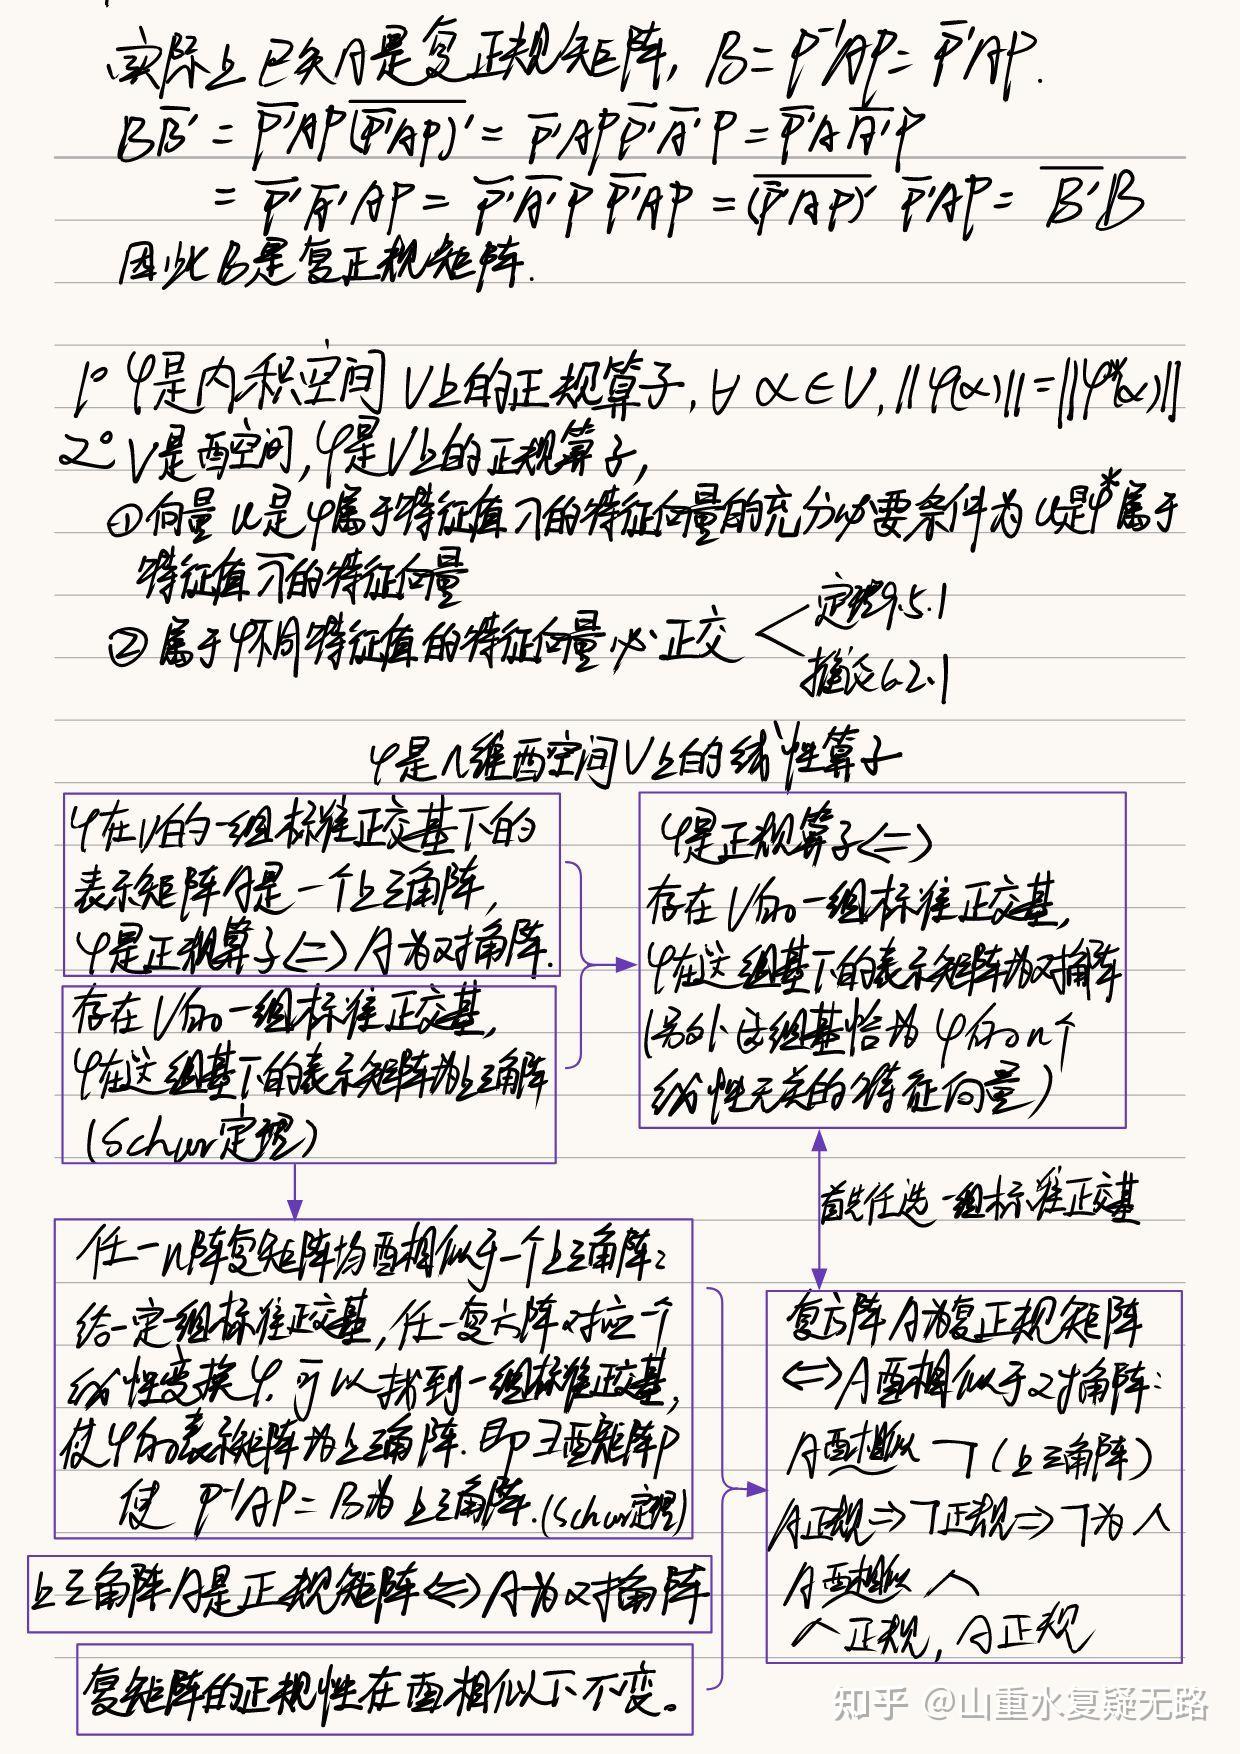 实际上已知A是复正规矩阵, B = P⁻¹AP = P̅'AP.
BB̅' = P̅'AP(P̅'AP)̅' = P̅'APP̅'A̅'P = P̅'AA̅'P
= P̅'A̅'AP = P̅'A̅'PP̅'AP = (P̅'AP)̅' P̅'AP = B̅'B
因此B是复正规矩阵.
1° φ是内积空间V上的正规算子, ∀ α∈V, ||φ(α)|| = ||φ*(α)||
2° V是酉空间, φ是V上的正规算子,
① 向量u是φ属于特征值λ的特征向量的充分必要条件为u是φ*属于
特征值λ̅的特征向量
② 属于φ不同特征值的特征向量必正交
定理9.5.1
推论6.2.1
φ是n维酉空间V上的线性算子
φ在V的一组标准正交基下的
表示矩阵A是一个上三角阵,
φ是正规算子<=>A为对角阵.
存在V的一组标准正交基,
φ在这组基下的表示矩阵为上三角阵
(Schur定理)
φ是正规算子<=>
存在V的一组标准正交基,
φ在这组基下的表示矩阵为对角阵
(另外这组基恰为φ的n个
线性无关的特征向量)
首先任选一组标准正交基
任一n阵复矩阵均酉相似于一个上三角阵:
给一定组标准正交基, 任一复方阵对应一个
线性变换φ, 可以找到一组标准正交基,
使φ的表示矩阵为上三角阵. 即∃酉矩阵P
使 P⁻¹AP = B为上三角阵. (Schur定理)
复方阵A为复正规矩阵
<=>A酉相似于对角阵:
A酉相似 T (上三角阵)
A正规=>T正规=>T为Λ
A酉相似 Λ
Λ正规, A正规
上三角阵A是正规矩阵<=>A为对角阵
复矩阵的正规性在酉相似下不变。
知乎 @山重水复疑无路